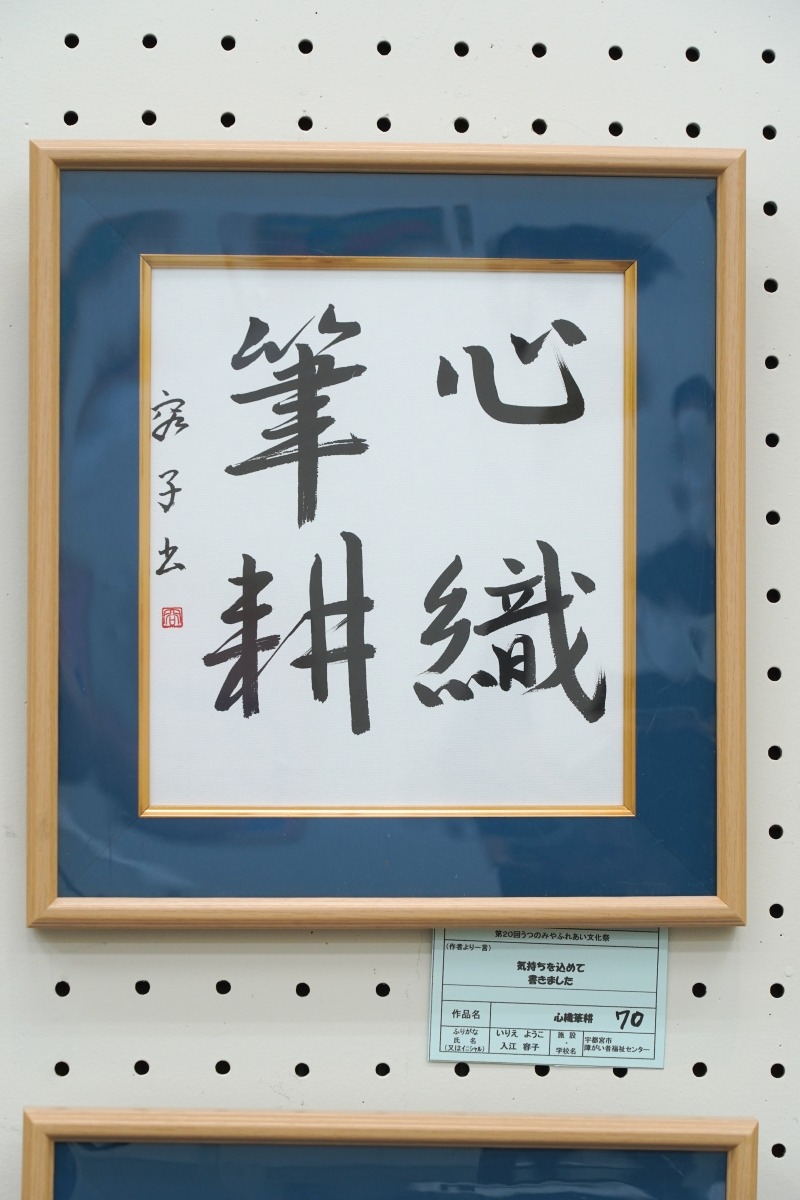 心織
筆耕
容子書
容
第20回うつのみやふれあい文化祭
(作者より一言)
気持ちを込めて
書きました
作品名 心織筆耕 70
ふりがな いりえ ようこ
氏名 入江 容子
(又はイニシャル)
施設・学校名 宇都宮市
障がい者福祉センター